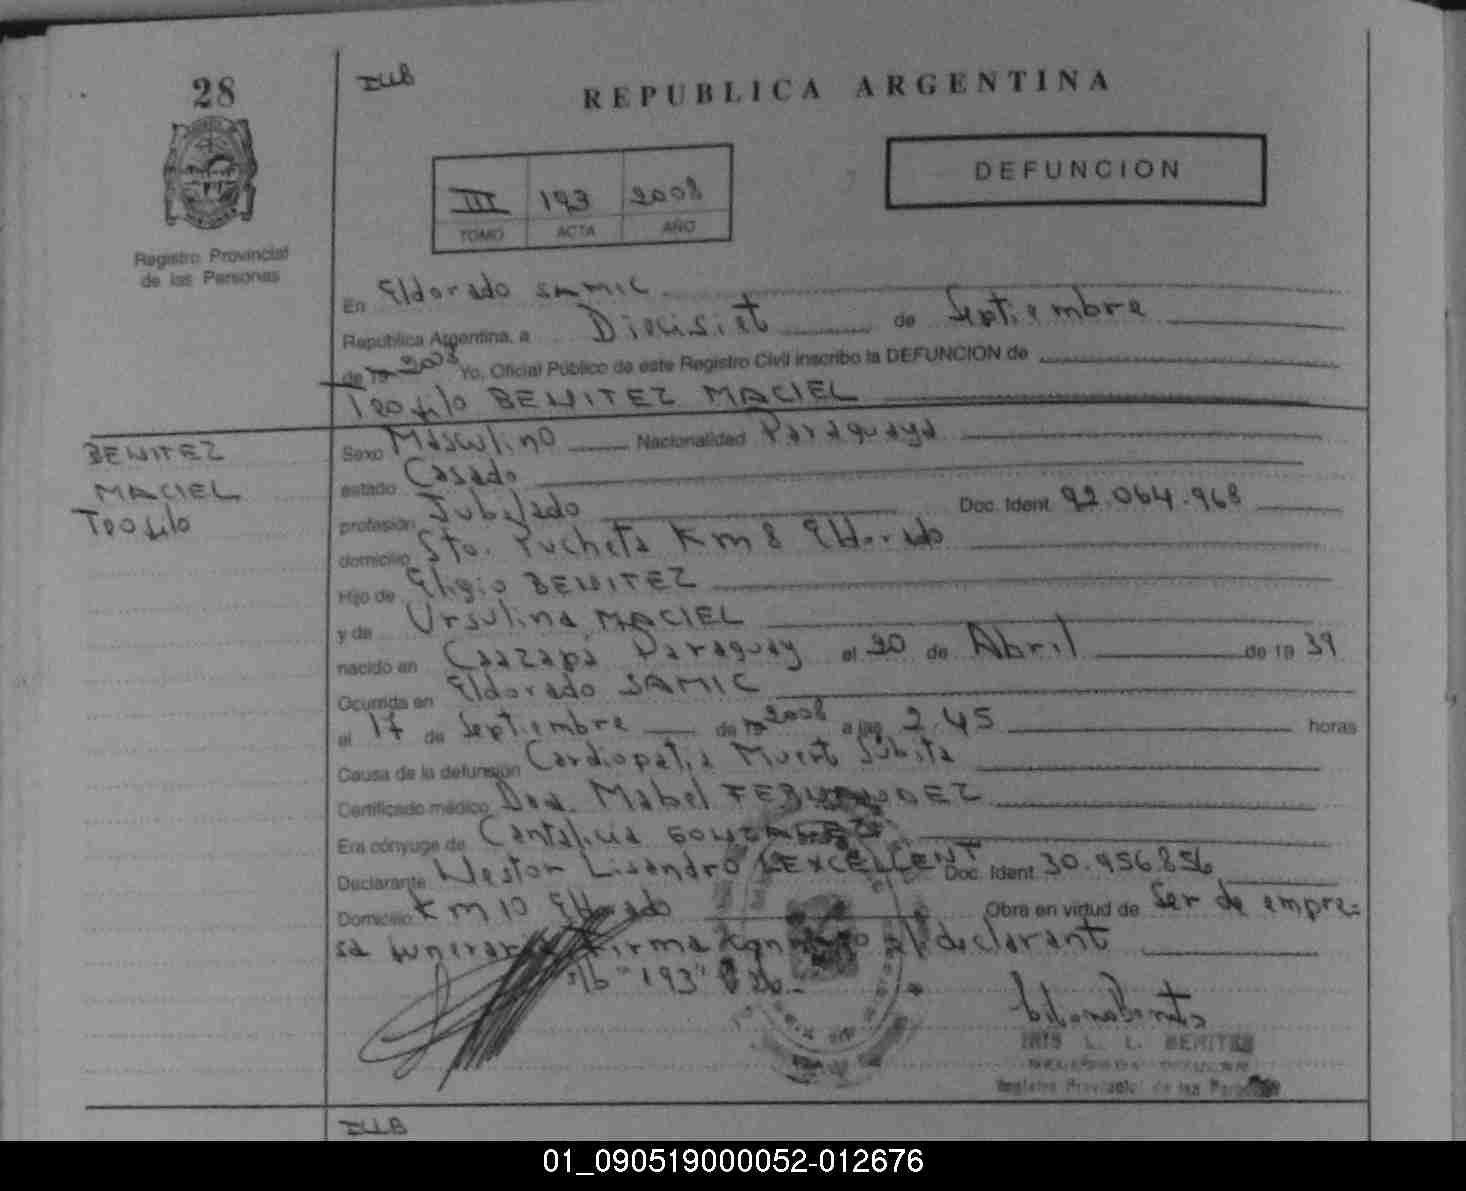 28
IUB
REPUBLICA ARGENTINA
III 193 2008
TOMO ACTA AÑO
DEFUNCION
Registro Provincial
de las Personas
En Eldorado SAMIC
República Argentina, a Diecisiete de Septiembre
de 19 2008 Yo, Oficial Público de este Registro Civil inscribo la DEFUNCION de
Teofilo BENITEZ MACIEL
BENITEZ
MACIEL
Teofilo
Sexo Masculino Nacionalidad Paraguaya
estado Casado
profesión Jubilado Doc. Ident. 92.064.968
domicilio Sto. Pucheta Km 8 Eldorado
Hijo de Eligio BENITEZ
y de Ursulina MACIEL
nacido en Caazapá Paraguay el 20 de Abril de 19 39
Ocurrida en Eldorado SAMIC
el 17 de Septiembre de 19 2008 a las 2.45 horas
Causa de la defunsión Cardiopatia Muerte Súbita
Certificado médico Dra. Mabel FERNANDEZ
Era cónyuge de Cantalicia GONZALEZ
Declarante Nestor Lisandro LEXCELLENT Doc. Ident. 30.956.856
Domicilio Km 10 Eldorado Obra en virtud de Ser de empre=
sa funeraria Firma conmigo el declarante
s/b "193"
IRIS L. L. BENITEZ
Registro Provincial de las Personas
IUB
01_090519000052-012676